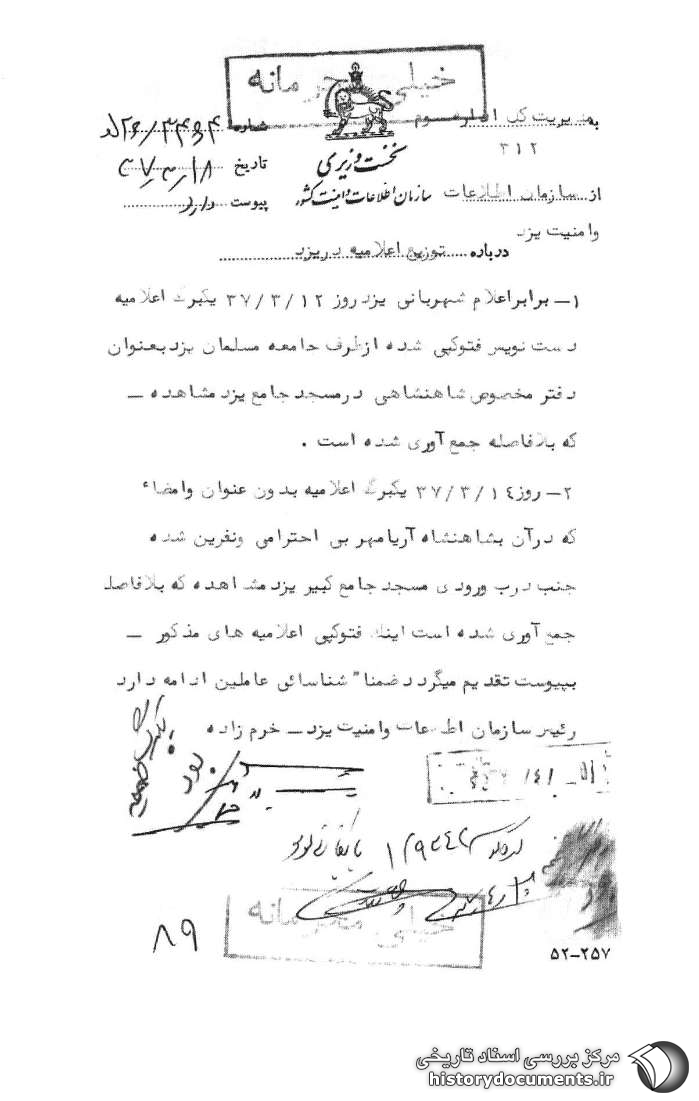 خیلی محرمانه
بمدیریت کل اداره سوم
۳۱۲
از سازمان اطلاعات
وامنیت یزد
نخست وزیری
سازمان اطلاعات وامنیت کشور
شماره
تاریخ ۳۷/۳/۱۸
پیوست دارد
درباره توزیع اعلامیه در یزد
۱- برابر اعلام شهربانی یزد روز ۳۷/۳/۱۲ یکبرگ اعلامیه
دست نویس فتوکپی شده ازطرف جامعه مسلمان یزد بعنوان
دفتر مخصوص شاهنشاهی درمسجد جامع یزد مشاهده -
که بلافاصله جمع آوری شده است .
۲- روز ۳۷/۳/۱٤ یکبرگ اعلامیه بدون عنوان وامضاء
که درآن بشاهنشاه آریامهر بی احترامی ونفرین شده
جنب درب ورودی مسجد جامع کبیر یزد مشاهده که بلافاصله
جمع آوری شده است اینك فتوکپی اعلامیه های مذکور -
بپیوست تقدیم میگردد ضمنا" شناسائی عاملین ادامه دارد
رئیس سازمان اطلاعات وامنیت یزد - خرم زاده
۸۹
خیلی محرمانه
۵۲-۲۵۷
مرکز بررسی اسناد تاریخی
historydocuments.ir